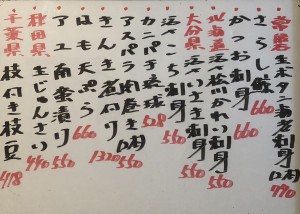 生ボタン海老刺身 990
さらし鯨 660
かつお刺身 550
北海道 活松川かれい刺身 550
大分県 活〆いさき刺身 550
活〆こち刺身 550
カンパチ琉球 528
アスパラ肉巻き 550
きんき煮付け 1320
はも天ぷら 660
アユ南蛮漬け 550
秋田県 生じゅんさい 440
千葉県 枝付き枝豆 418